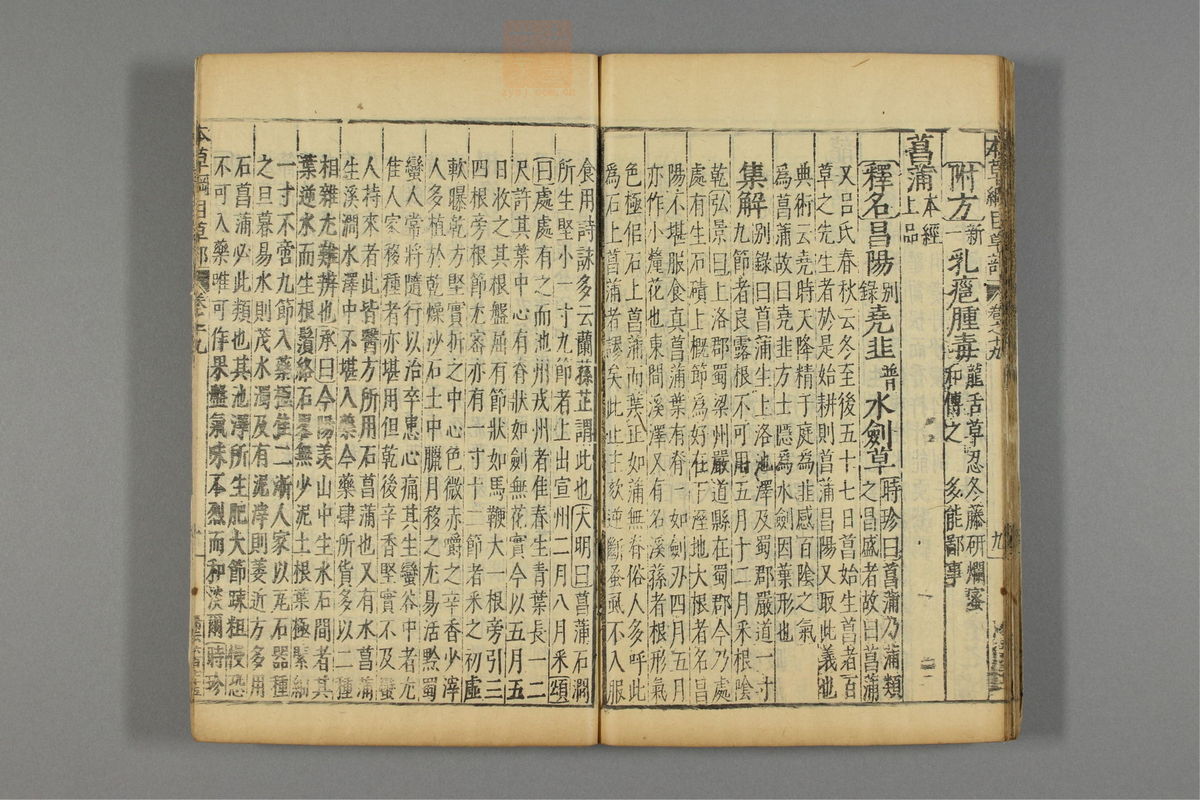 本草綱目草部 卷之十九 九
附方新一 乳癰腫毒龍舌草忍冬藤研爛蜜和傅之 多能鄙事
菖蒲本經上品
釋名昌陽別錄堯韭普水劍草時珍曰菖蒲乃蒲類之昌盛者故曰菖蒲
又呂氏春秋云冬至後五十七日菖始生菖者百
草之先生者於是始耕則菖蒲昌陽又取此義也
典術云堯時天降精于庭為韭感百陰之氣
為菖蒲故曰堯韭方士隱為水劍因葉形也
集解別錄曰菖蒲生上洛池澤及蜀郡嚴道一寸九節者良露根不可用五月十二月采根陰
乾弘景曰上洛郡屬梁州嚴道縣在蜀郡今乃處
處有生石磧上概節為好在下溼地大根者名昌
陽不堪服食真菖蒲葉有脊一如劍刃四月五月
亦作小釐花也東間溪澤又有名溪蓀者根形氣
色極佀石上菖蒲而葉正如蒲無脊俗人多呼此
為石上菖蒲者謬矣此止主欬逆斷蚤虱不入服
食用詩詠多云蘭蓀正謂此也大明曰菖蒲石澗
所生堅小一寸九節者上出宣州二月八月采頌
曰處處有之而池州戎州者佳春生青葉長一二
尺許其葉中心有脊狀如劍無花實今以五月五
日收之其根盤屈有節狀如馬鞭大一根旁引三
四根旁根節尤密亦有一寸十二節者采之初虛
軟曝乾方堅實折之中心色微赤嚼之辛香少滓
人多植於乾燥沙石土中臘月移之尤易活黔蜀
蠻人常將隨行以治卒患心痛其生蠻谷中者尤
佳人家移種者亦堪用但乾後辛香堅實不及蠻
人持來者此皆醫方所用石菖蒲也又有水菖蒲
生溪澗水澤中不堪入藥今藥肆所貨多以二種
相雜尤難辨也承曰今陽羨山中生水石間者其
葉逆水而生根鬚絡石略無少泥土根葉極緊細
一寸不啻九節入藥極佳二浙人家以瓦石器種
之旦暮易水則茂水濁及有泥滓則萎近方多用
石菖蒲必此類也其池澤所生肥大節踈粗慢恐
不可入藥唯可作果盤氣味不烈而和淡爾時珍
本草綱目草部 卷十九 十